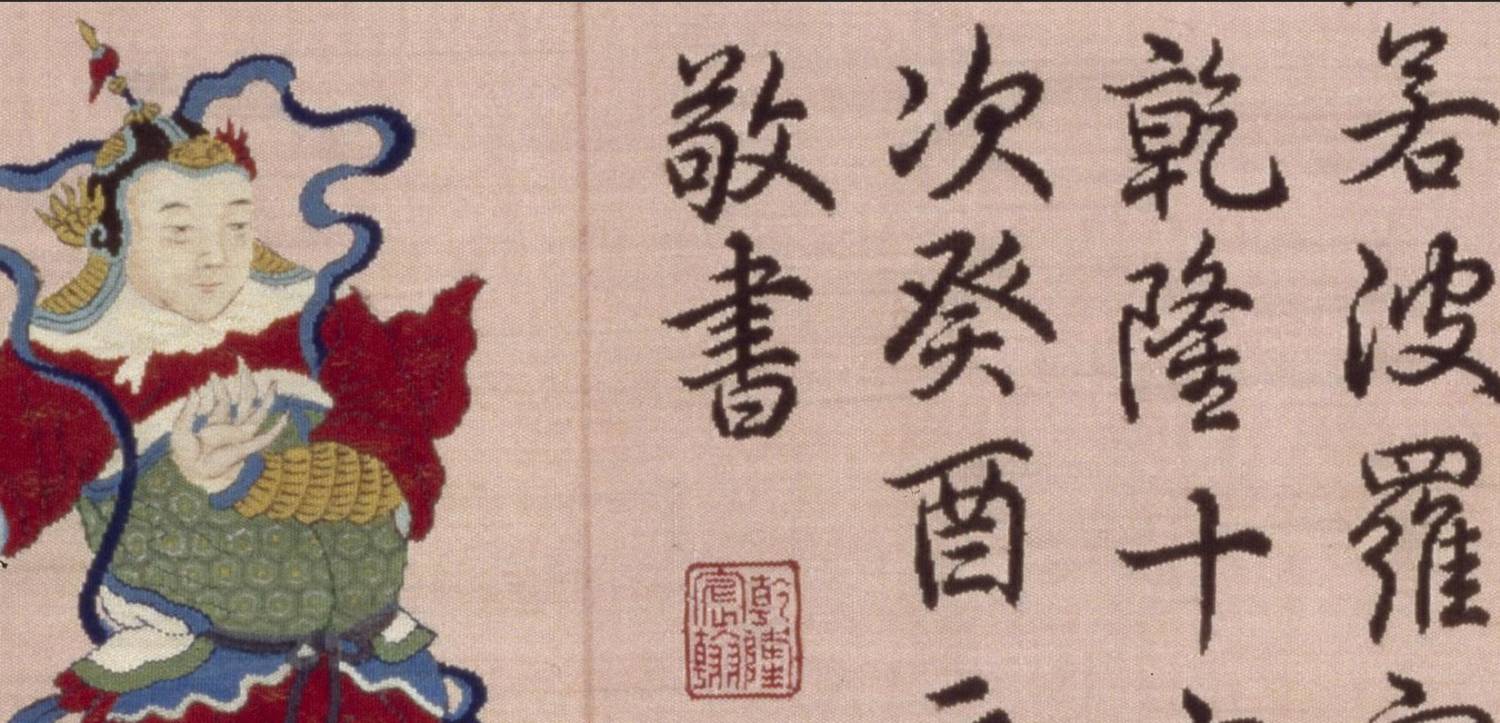 若波羅
乾隆十
次癸酉
敬書
乾隆
宸翰